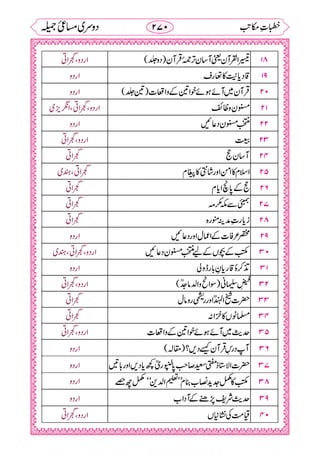 خطباتِ مکاتب ۲۷۰ دوسری مساعیٔ جمیلہ
۱۸ تیسیر القرآن یعنی آسان ترجمۂ قرآن (دو جلد) اردو، گجراتی
۱۹ قادیانیت کا تعارف اردو
۲۰ قرآن میں آئے ہوئے خواتین کے واقعات (تین جلد) اردو
۲۱ مسنون وظائف اردو، گجراتی، انگریزی
۲۲ منتخب مسنون دعائیں اردو
۲۳ بیعت اردو، گجراتی
۲۴ آسان حج گجراتی
۲۵ اسلام کا امن اور شانتی کا پیغام گجراتی، ہندی
۲۶ حج کے پانچ ایام گجراتی
۲۷ بمبئی سے مکہ مکرمہ گجراتی
۲۸ زیارتِ مدینہ منورہ گجراتی
۲۹ مختصر عرفات کے اعمال اور دعائیں اردو
۳۰ مکتب کے بچوں کے لیے منتخب مسنون دعائیں اردو، گجراتی، ہندی
۳۱ تذکرۂ قاریان بارڈولی اردو
۳۲ فیضِ سلیمانی (سوانح والد ماجد) اردو، گجراتی
۳۳ حضرت شیخ الہند اور ریشمی رومال گجراتی
۳۴ مسلمانوں کا خزانہ گجراتی
۳۵ حدیث میں آئے ہوئے خواتین کے واقعات اردو
۳۶ آپ درسِ قرآن کیسے دیں؟ (مقالہ) اردو
۳۷ حضرت الاستاذ مفتی سعید صاحب پالنپوریؒ کچھ یادیں اور باتیں اردو
۳۸ مکتب کا مکمل جدید نصاب بنام "تعلیم الدین" مکمل چھ حصے اردو
۳۹ حدیث شریف پڑھنے کے آداب اردو
۴۰ قیامت کی نشانیاں اردو، گجراتی